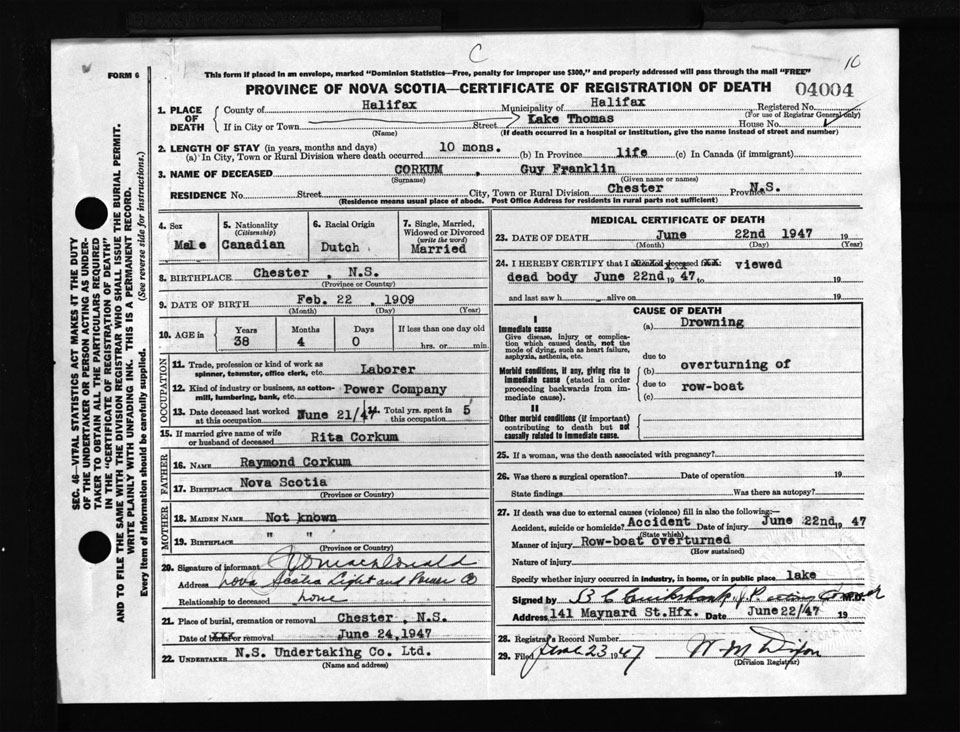 C
10
FORM 6
This form if placed in an envelope, marked "Dominion Statistics—Free, penalty for improper use $300," and properly addressed will pass through the mail "FREE"
PROVINCE OF NOVA SCOTIA—CERTIFICATE OF REGISTRATION OF DEATH 04004
1. PLACE OF DEATH
County of Halifax Municipality of Halifax Registered No.
(For use of Registrar General only)
If in City or Town Street Lake Thomas House No.
(Name) (If death occurred in a hospital or institution, give the name instead of street and number)
2. LENGTH OF STAY (in years, months and days)
(a) In City, Town or Rural Division where death occurred 10 mons. (b) In Province life (c) In Canada (if immigrant)
3. NAME OF DECEASED CORKUM , Guy Franklin
(Surname) (Given name or names)
RESIDENCE No. Street City, Town or Rural Division Chester Province N.S.
(Residence means usual place of abode. Post Office Address for residents in rural parts not sufficient)
4. Sex
Male
5. Nationality
(Citizenship)
Canadian
6. Racial Origin
Dutch
7. Single, Married, Widowed or Divorced
(write the word)
Married
8. BIRTHPLACE Chester , N.S.
(Province or Country)
9. DATE OF BIRTH Feb. 22 , 1909
(Month) (Day) (Year)
10. AGE in
Years Months Days If less than one day old
38 4 0 hrs. or min.
OCCUPATION
11. Trade, profession or kind of work as spinner, teamster, office clerk, etc. Laborer
12. Kind of industry or business, as cotton-mill, lumbering, bank, etc. Power Company
13. Date deceased last worked at this occupation June 21/47 14. Total yrs. spent in this occupation 5
15. If married give name of wife or husband of deceased Rita Corkum
FATHER
16. NAME Raymond Corkum
17. BIRTHPLACE Nova Scotia
(Province or Country)
MOTHER
18. MAIDEN NAME Not known
19. BIRTHPLACE " "
(Province or Country)
20. Signature of informant MacDonald
Address Nova Scotia Light and Power Co
Relationship to deceased none
21. Place of burial, cremation or removal Chester , N.S.
Date of burial or removal June 24,1947
22. UNDERTAKER N.S. Undertaking Co. Ltd.
(Name and address)
MEDICAL CERTIFICATE OF DEATH
23. DATE OF DEATH June 22nd 1947 19
(Month) (Day) (Year)
24. I HEREBY CERTIFY that I deceased viewed
dead body June 22nd 19 47, to 19
and last saw h alive on 19
CAUSE OF DEATH
I
Immediate cause
Give disease, injury or complication which caused death, not the mode of dying, such as heart failure, asphyxia, asthenia, etc.
(a) Drowning
due to
Morbid conditions, if any, giving rise to immediate cause (stated in order proceeding backwards from immediate cause).
(b) overturning of
due to row-boat
(c)
II
Other morbid conditions (if important) contributing to death but not causally related to immediate cause.
25. If a woman, was the death associated with pregnancy?
26. Was there a surgical operation? Date of operation 19
State findings Was there an autopsy?
27. If death was due to external causes (violence) fill in also the following:—
Accident, suicide or homicide? Accident Date of injury June 22nd, 19 47
(State which)
Manner of injury Row-boat overturned
(How sustained)
Nature of injury
Specify whether injury occurred in industry, in home, or in public place lake
Signed by B C Cruikshank
Address 141 Maynard St.Hfx. Date June 22/47 19
28. Registrar's Record Number
29. Filed June 23 1947 W M Dixon
(Division Registrar)
SEC. 46—VITAL STATISTICS ACT MAKES IT THE DUTY
OF THE UNDERTAKER OR PERSON ACTING AS UNDER-
TAKER TO OBTAIN ALL THE PARTICULARS REQUIRED
IN THE "CERTIFICATE OF REGISTRATION OF DEATH"
AND TO FILE THE SAME WITH THE DIVISION REGISTRAR WHO SHALL ISSUE THE BURIAL PERMIT.
WRITE PLAINLY WITH UNFADING INK. THIS IS A PERMANENT RECORD.
Every item of information should be carefully supplied. (See reverse side for instructions.)